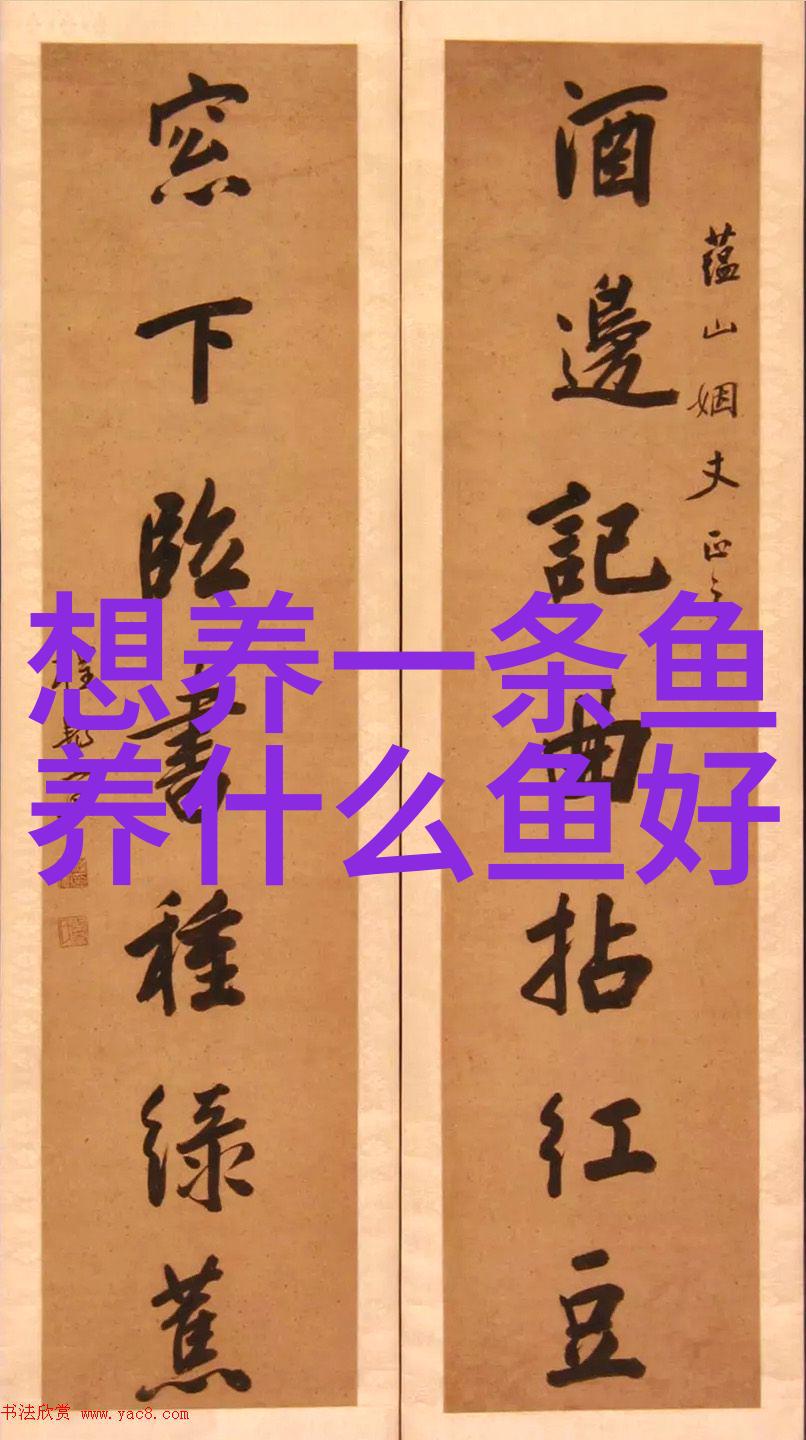 酒邊記曲拈紅豆
蕴山姻丈正之
窓下臨書種綠蕉
想养一条鱼
养什么鱼好
书法欣赏 www.yac8.com